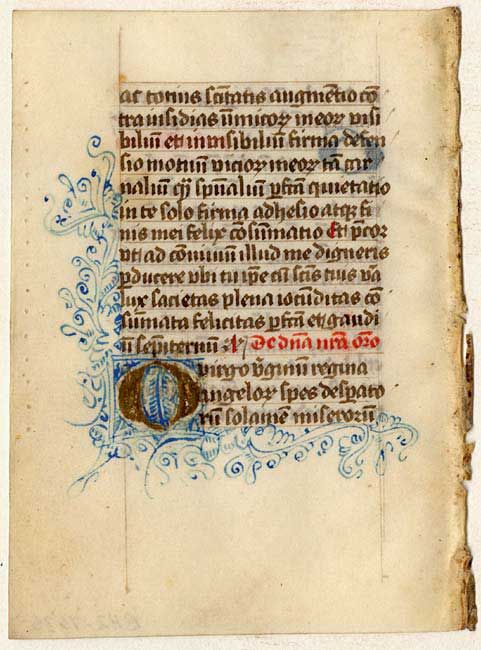 ac totius sc̄itatis augmētio cō
tra īsidias īimicoꝝ meoꝝ visi
biliū et invisibiliū firma defen
sio motuū vicioꝝ meoꝝ tā car
naliū qͣ spūaliū pfcā quietatio
in te solo firma adhesio atqꝫ fi
nis mei felix cōsūmatio Et p̄cor
vt ad cōuiuiū illud me digneris
ꝑducere vbi tu ip̄e cū sc̄is tuis va
lux sacietas plena iocūditas cō
sūmata felicitas pfcā et gaudi
ū sēpiternū De dn̄a nr̄a oro
O virgo v̄ginū regina
angeloꝝ spes despato
rū solamē miseroꝝ